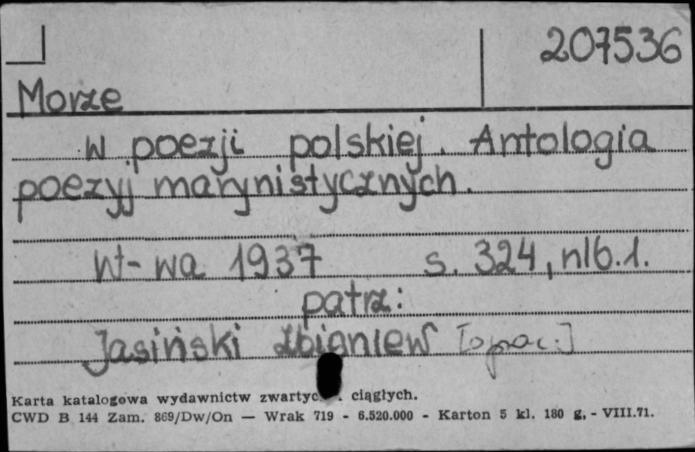 207536
Morze
w poezji polskiej. Antologia
poezyj marynistycznych.
W-wa 1937 s. 324, nlb. 1.
patrz:
Jasiński Zbigniew [oprac.]
Karta katalogowa wydawnictw ciągłych.
CWD B 144 Zam. 869/Dw/On — Wrak 719 - 6.520.000 - Karton 5 kl. 180 g. - VIII.71.